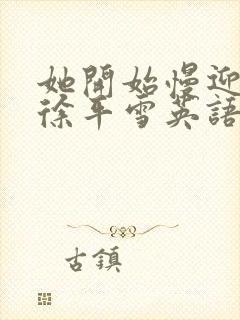 她開始慢迎
徐平雪英語
古鎮